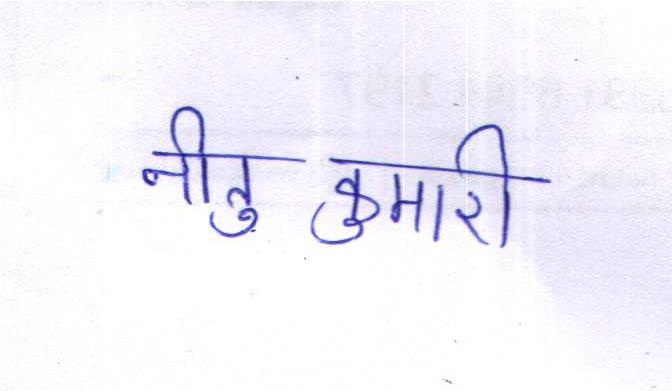 नीतु कुमारी